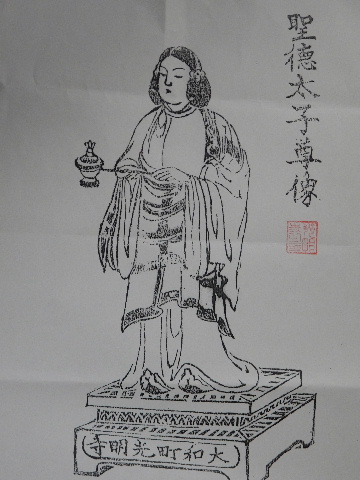 聖徳太子尊像
大和町光明寺